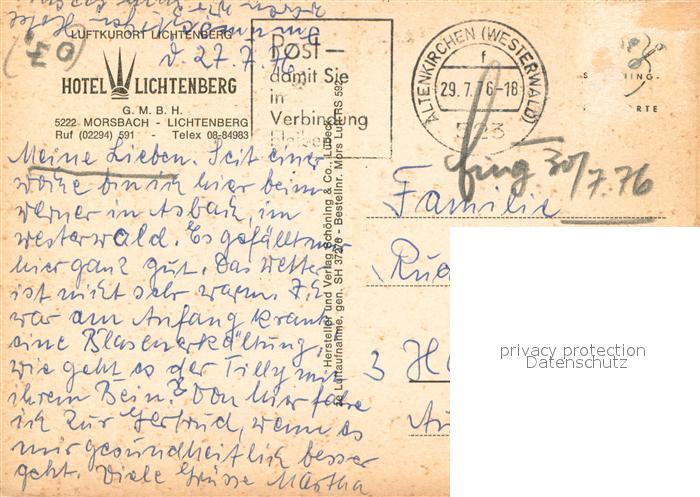 LUFTKURORT LICHTENBERG
d. 27.7.76
HOTEL LICHTENBERG
G. M. B. H.
5222 MORSBACH - LICHTENBERG
Ruf (02294) 591 - Telex 08-84983
Post –
damit Sie
in
Verbindung
bleiben
ALTENKIRCHEN (WESTERWALD)
f
29.7.76-18
523
Meine Lieben. Seit einer
Woche bin ich hier beim
Werner in Asbach, im
Westerwald. Es gefällt mir
hier ganz gut. Das Wetter
ist nicht sehr warm. Ich
war am Anfang krank
eine Blasenerkältung,
wie geht es der Tilly mit
ihrem Bein? Von hier fahre
ich zur Gertrud, wenn es
mir gesundheitlich besser
geht. Viele Grüsse Martha
Hersteller und Verlag Schöning & Co., Lübeck
Luftaufnahme, gen. SH 372/6 - Bestellnr. Mors Lu
30/7.76
Familie
3
privacy protection
Datenschutz